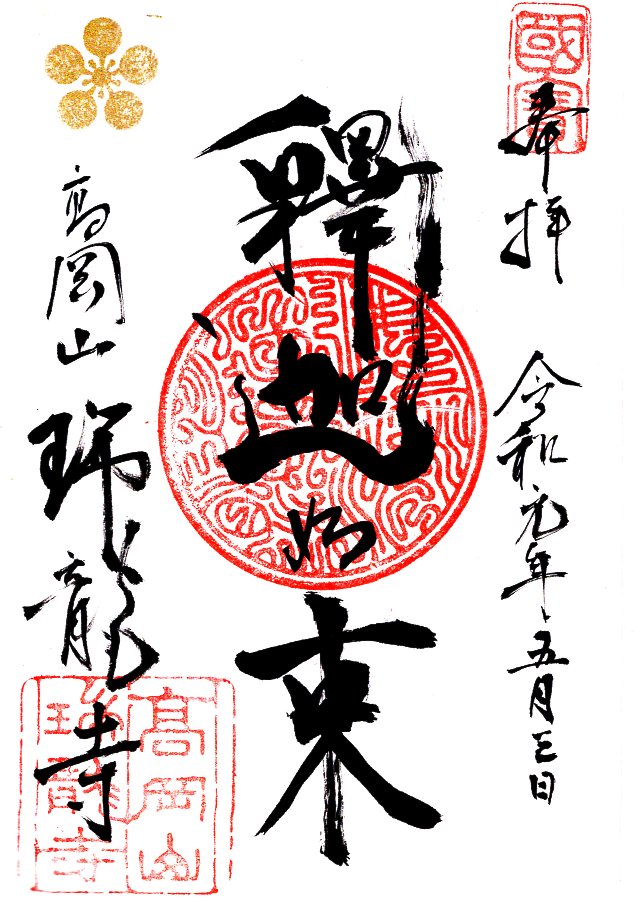 國寶
奉拝
令和元年五月三日
釋迦如来
高岡山
瑞龍寺
高岡山
瑞龍寺